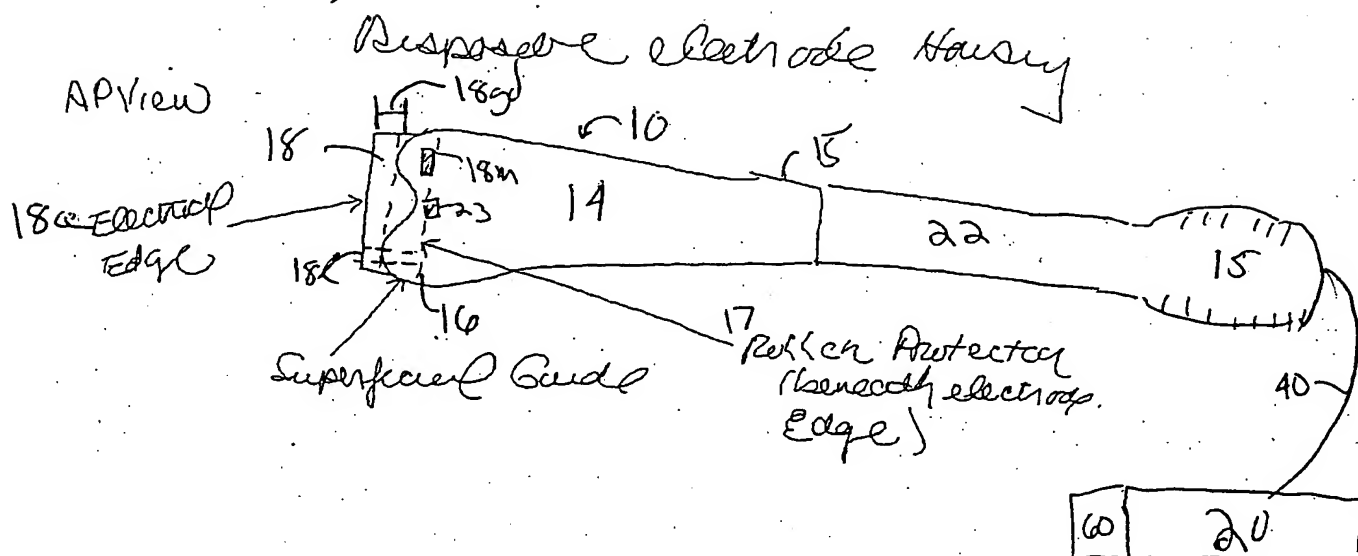 Disposable electrode Housing
AP View
18gd
10
18
15
18m
23
14
18e Electrical
Edge
22
15
18l
16
17
Superficial Guide
Protector
(beneath electrode
Edge)
40
60
20